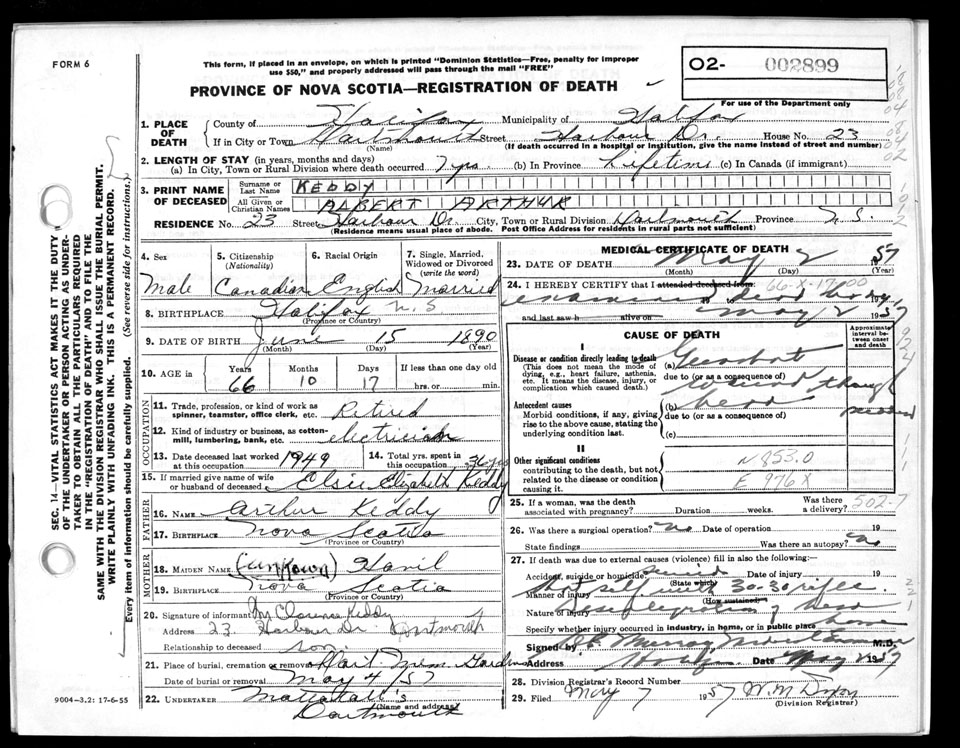 FORM 6
This form, if placed in an envelope, on which is printed "Dominion Statistics—Free, penalty for improper
use $50," and properly addressed will pass through the mail "FREE"
PROVINCE OF NOVA SCOTIA—REGISTRATION OF DEATH
O2- 002899
For use of the Department only
SEC. 14—VITAL STATISTICS ACT MAKES IT THE DUTY
OF THE UNDERTAKER OR PERSON ACTING AS UNDER-
TAKER TO OBTAIN ALL THE PARTICULARS REQUIRED
IN THE "REGISTRATION OF DEATH" AND TO FILE THE
SAME WITH THE DIVISION REGISTRAR WHO SHALL ISSUE THE BURIAL PERMIT.
WRITE PLAINLY WITH UNFADING INK. THIS IS A PERMANENT RECORD.
Every item of information should be carefully supplied. (See reverse side for instructions.)
1. PLACE OF DEATH
County of Halifax Municipality of Halifax
If in City or Town Dartmouth Street Harbour Dr. House No. 23
(Name) (If death occurred in a hospital or institution, give the name instead of street and number)
2. LENGTH OF STAY (in years, months and days)
(a) In City, Town or Rural Division where death occurred 7 yrs. (b) In Province Lifetime (c) In Canada (if immigrant)
3. PRINT NAME OF DECEASED
Surname or Last Name KEDDY
All Given or Christian Names ALBERT ARTHUR
RESIDENCE No. 23 Street Harbour Dr. City, Town or Rural Division Dartmouth Province N.S.
(Residence means usual place of abode. Post Office Address for residents in rural parts not sufficient)
4. Sex Male
5. Citizenship (Nationality) Canadian
6. Racial Origin English
7. Single, Married, Widowed or Divorced (write the word) Married
8. BIRTHPLACE Halifax N.S
(Province or Country)
9. DATE OF BIRTH June 15 1890
(Month) (Day) (Year)
10. AGE in Years 66 Months 10 Days 17 If less than one day old
hrs. or min.
OCCUPATION
11. Trade, profession, or kind of work as spinner, teamster, office clerk, etc. Retired
12. Kind of industry or business, as cotton-mill, lumbering, bank, etc. electrician
13. Date deceased last worked at this occupation 1949 14. Total yrs. spent in this occupation 36 yrs
15. If married give name of wife or husband of deceased Elsie Elizabeth Keddy
FATHER
16. NAME Arthur Keddy
17. BIRTHPLACE Nova Scotia
(Province or Country)
MOTHER
18. MAIDEN NAME (unknown)
19. BIRTHPLACE Nova Scotia
(Province or Country)
20. Signature of informant Clarence Keddy
Address 23 Harbour Dr Dartmouth
Relationship to deceased son
21. Place of burial, cremation or removal Dart. Mem. Gardens
Date of burial or removal May 4/57
22. UNDERTAKER Mattatall's
(Name and address)
Dartmouth
9004-3.2: 17-6-55
MEDICAL CERTIFICATE OF DEATH
23. DATE OF DEATH May 2 1957
(Month) (Day) (Year)
24. I HEREBY CERTIFY that I attended deceased from: 66-X-17
examined dead body
and last saw h alive on May 2 1957
CAUSE OF DEATH
Approximate interval between onset and death
I
Disease or condition directly leading to death
(This does not mean the mode of dying, e.g., heart failure, asthenia, etc. It means the disease, injury, or complication which caused death.)
(a) Gunshot
due to (or as a consequence of)
wound through
Antecedent causes
Morbid conditions, if any, giving rise to the above cause, stating the underlying condition last.
(b) head
due to (or as a consequence of)
(c)
II
Other significant conditions contributing to the death, but not related to the disease or condition causing it.
N 853.0
E 976X
25. If a woman, was the death associated with pregnancy? Duration weeks. Was there a delivery?
502-7
26. Was there a surgical operation? No Date of operation 19
State findings Was there an autopsy? No
27. If death was due to external causes (violence) fill in also the following:—
Accident, suicide or homicide Date of injury 19
(State which)
Manner of injury Shot self with 30-30 rifle
(How sustained)
Nature of injury of head
Specify whether injury occurred in industry, in home, or in public place home
Signed by Murray M.D.
Address Date May 2 1957
28. Division Registrar's Record Number
29. Filed May 7 1957 W.M.
(Division Registrar)